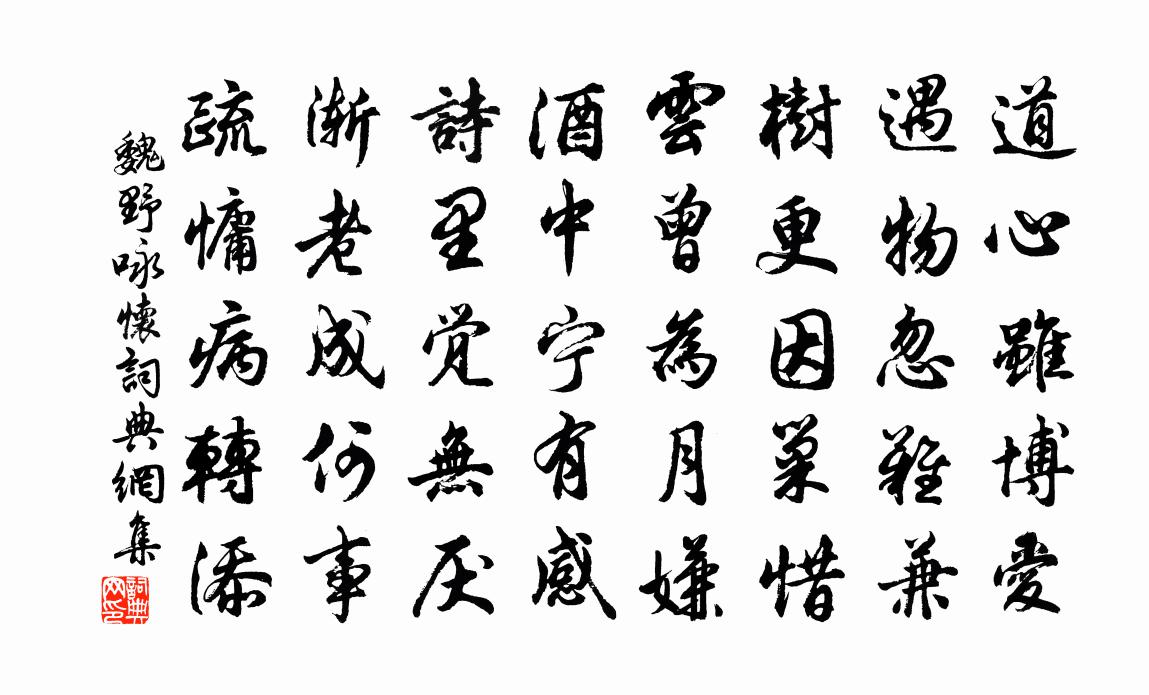 道心雖博愛
遇物忽難兼
樹更因巢惜
雲曾為月嫌
酒中宁有感
詩里覺無厌
渐老成何事
疏慵病轉添
魏野咏懷詞典網集
詞典网印